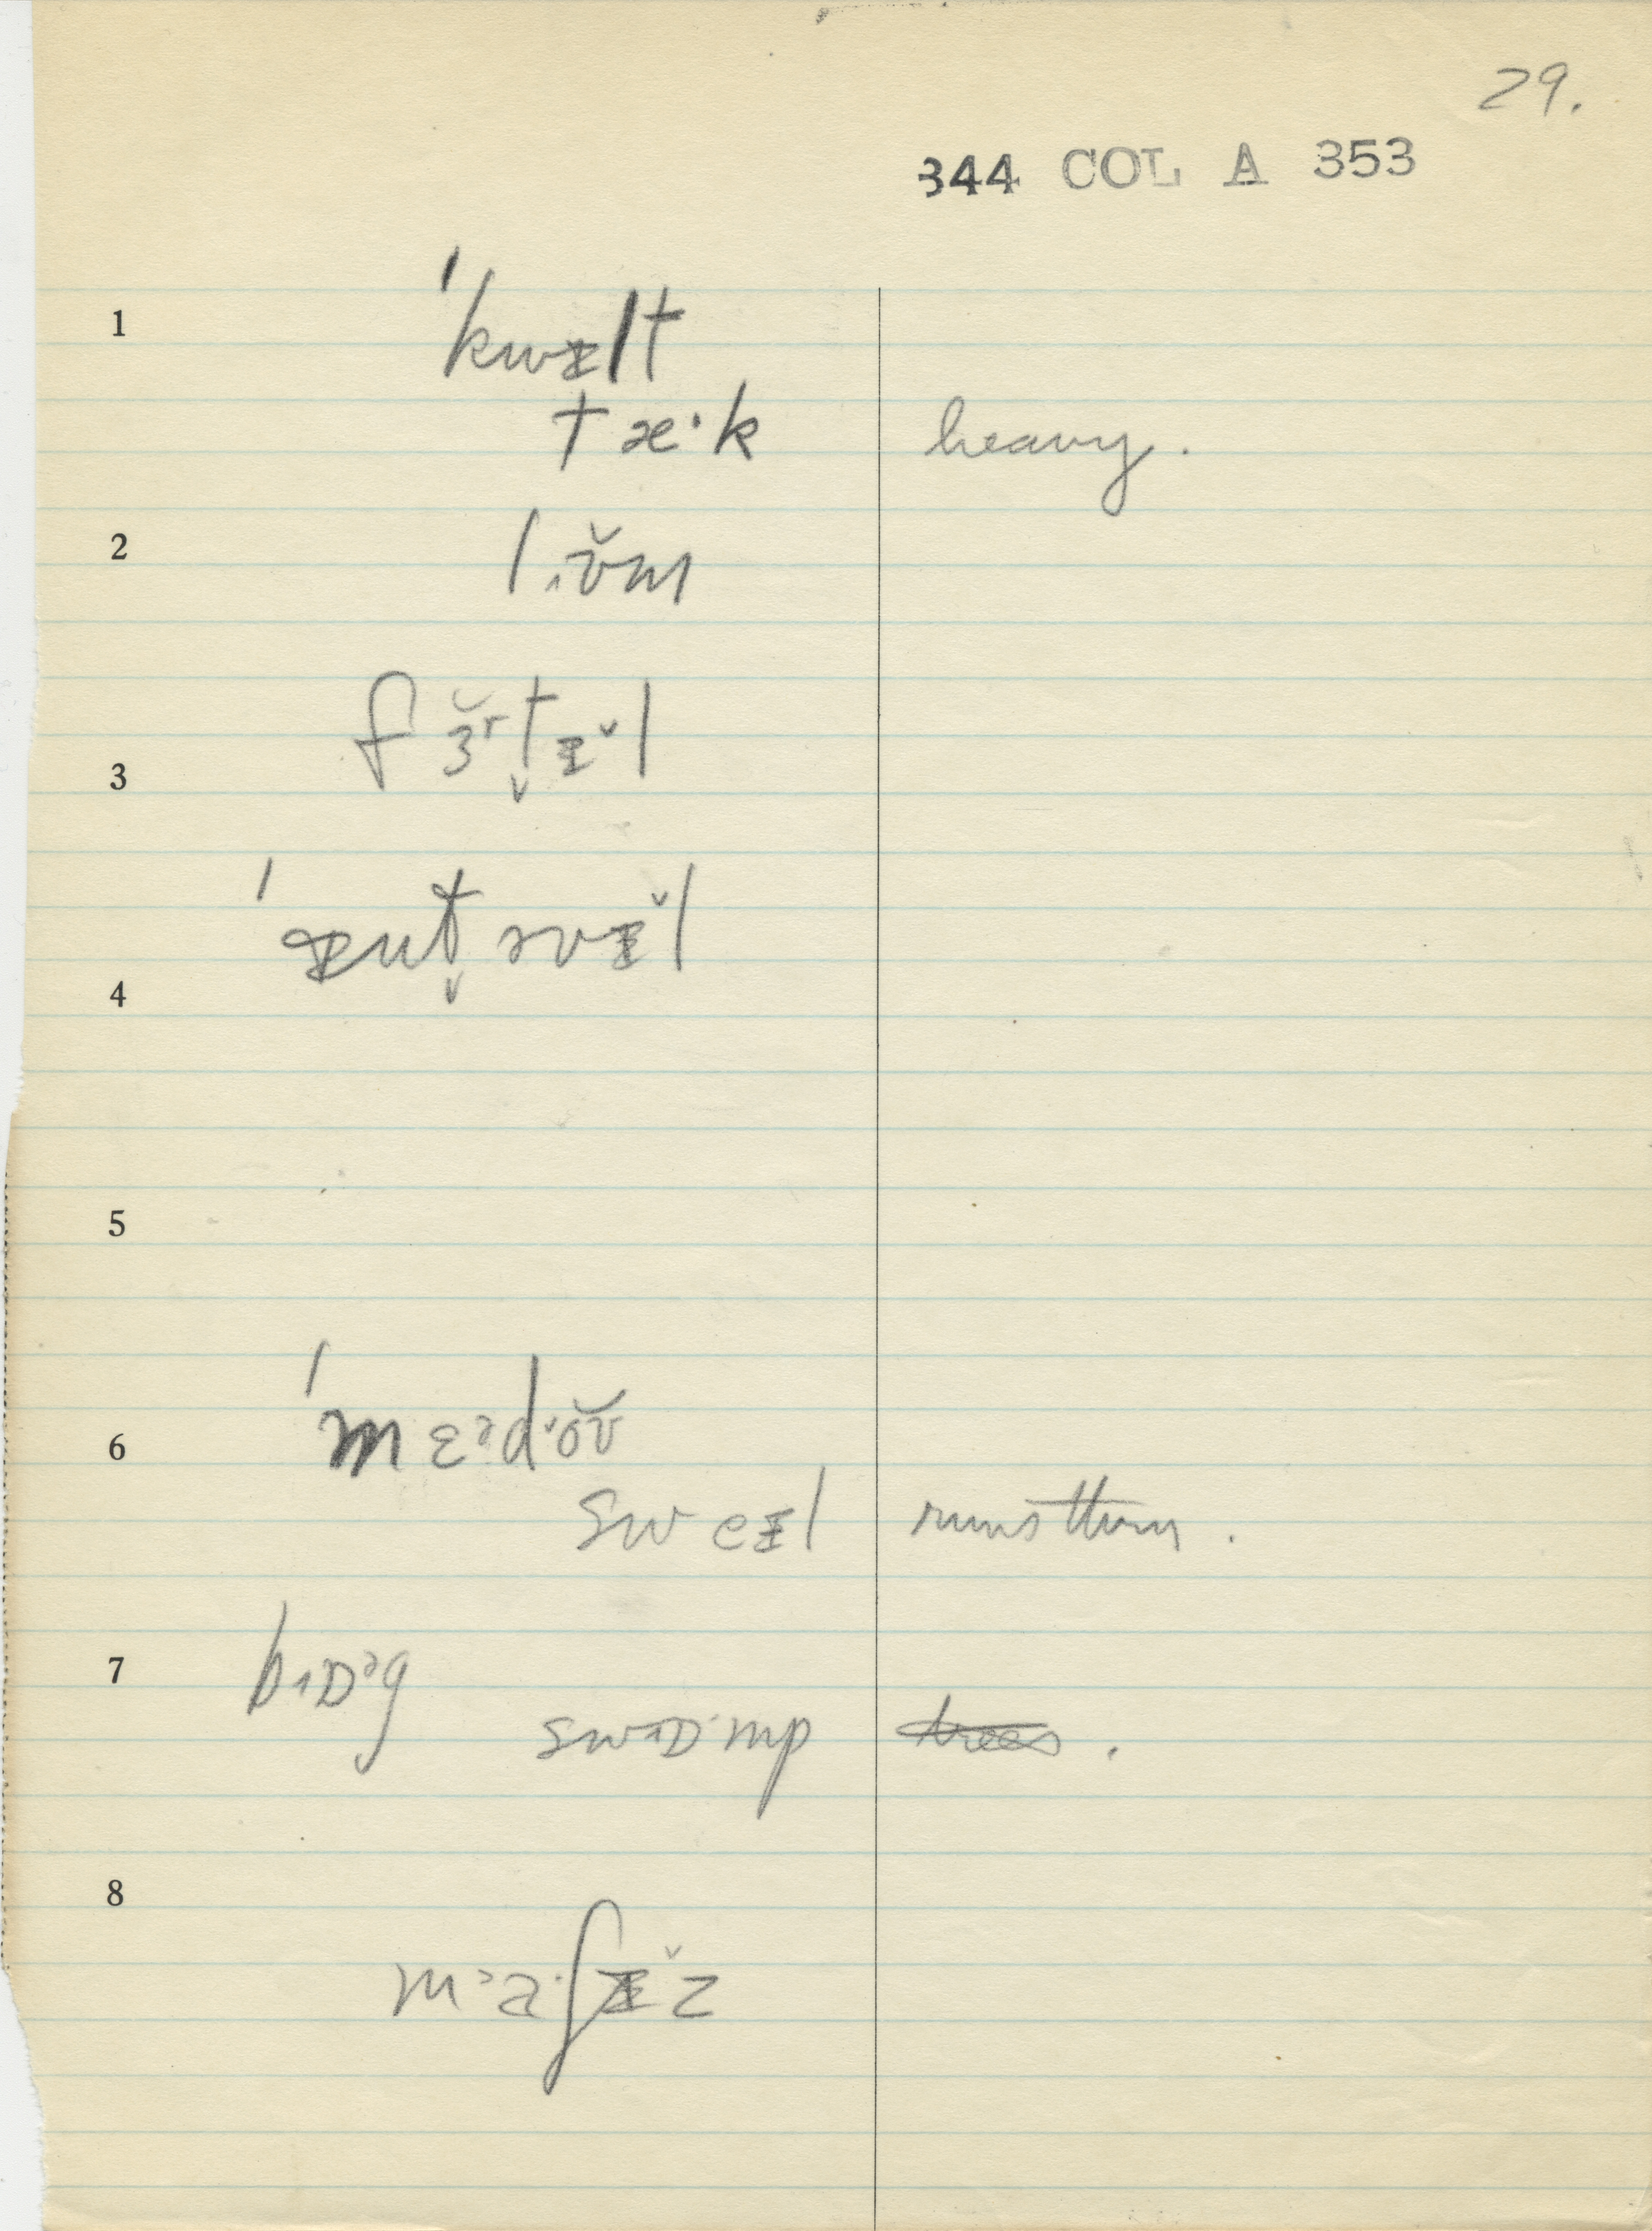 29.
344 COL A 353
1 ˈkwɪlt
tæ·k heavy.
2 l˰ɪ̆ʊm
3 fɜ̆ʳt̬ɪ̆l
4 ˈɪnt̬əvɪ̆l
5
6 ˈmɛᵊdˑŏʊ
sweɪl runs thru.
7 bɒᵊg
swɒ·mp trees.
8 mᵊa·ʃɪ̆z